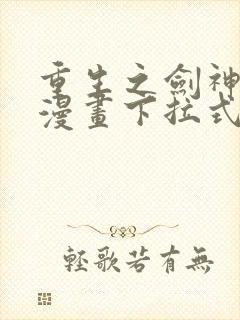 重生之劍神
漫畫下拉式
輕歌若有無